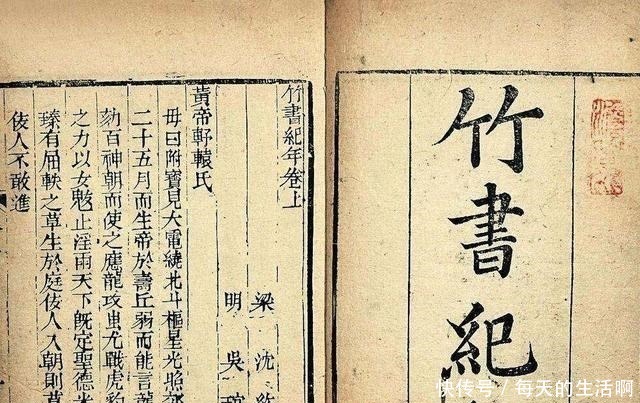 竹書紀
竹書紀年卷上
梁 沈約
明 吳琯
黃帝軒轅氏
母曰附寶見大電繞北斗樞星光照郊
二十五月而生帝於壽丘弱而能言
劾百神朝而使之應龍攻蚩尤戰虎豹
之力以女魃止淫雨天下既定聖德
臻有屈軼之草生於庭佞人入朝則草
佞人不敢進
快传号／每天的生活啊